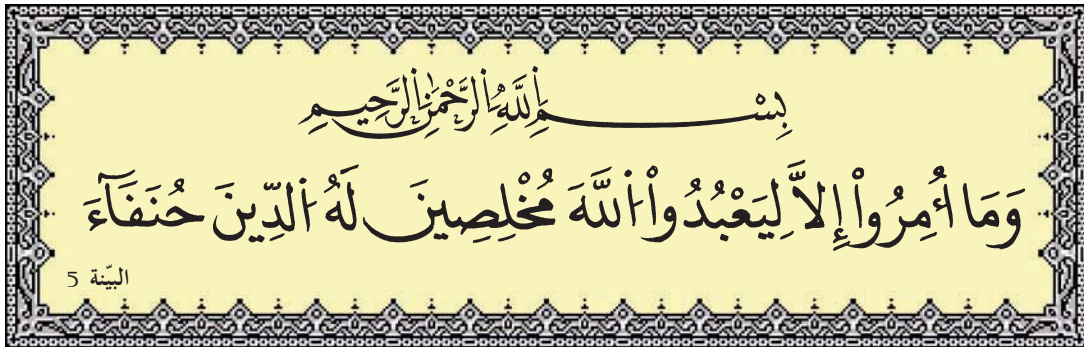 بِسْمِ اللَّهِ الرَّحْمَٰنِ الرَّحِيمِ
وَمَا أُمِرُواْ إِلاَّ لِيَعْبُدُواْ اللَّهَ مُخْلِصِينَ لَهُ الدِّينَ حُنَفَآءَ
البيّنة 5